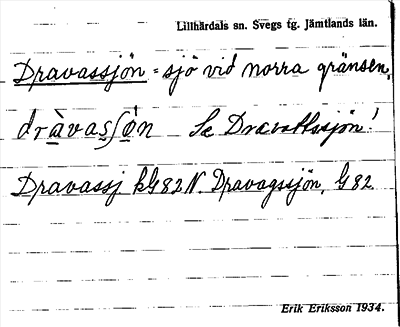 Lillhärdals sn. Svegs tg. Jämtlands län.
Dravassjön = sjö vid norra gränsen,
dràvasʃö́n Se Dravattssjön!
Dravassj kG82N. Dravagssjön, G82
Erik Eriksson 1934.